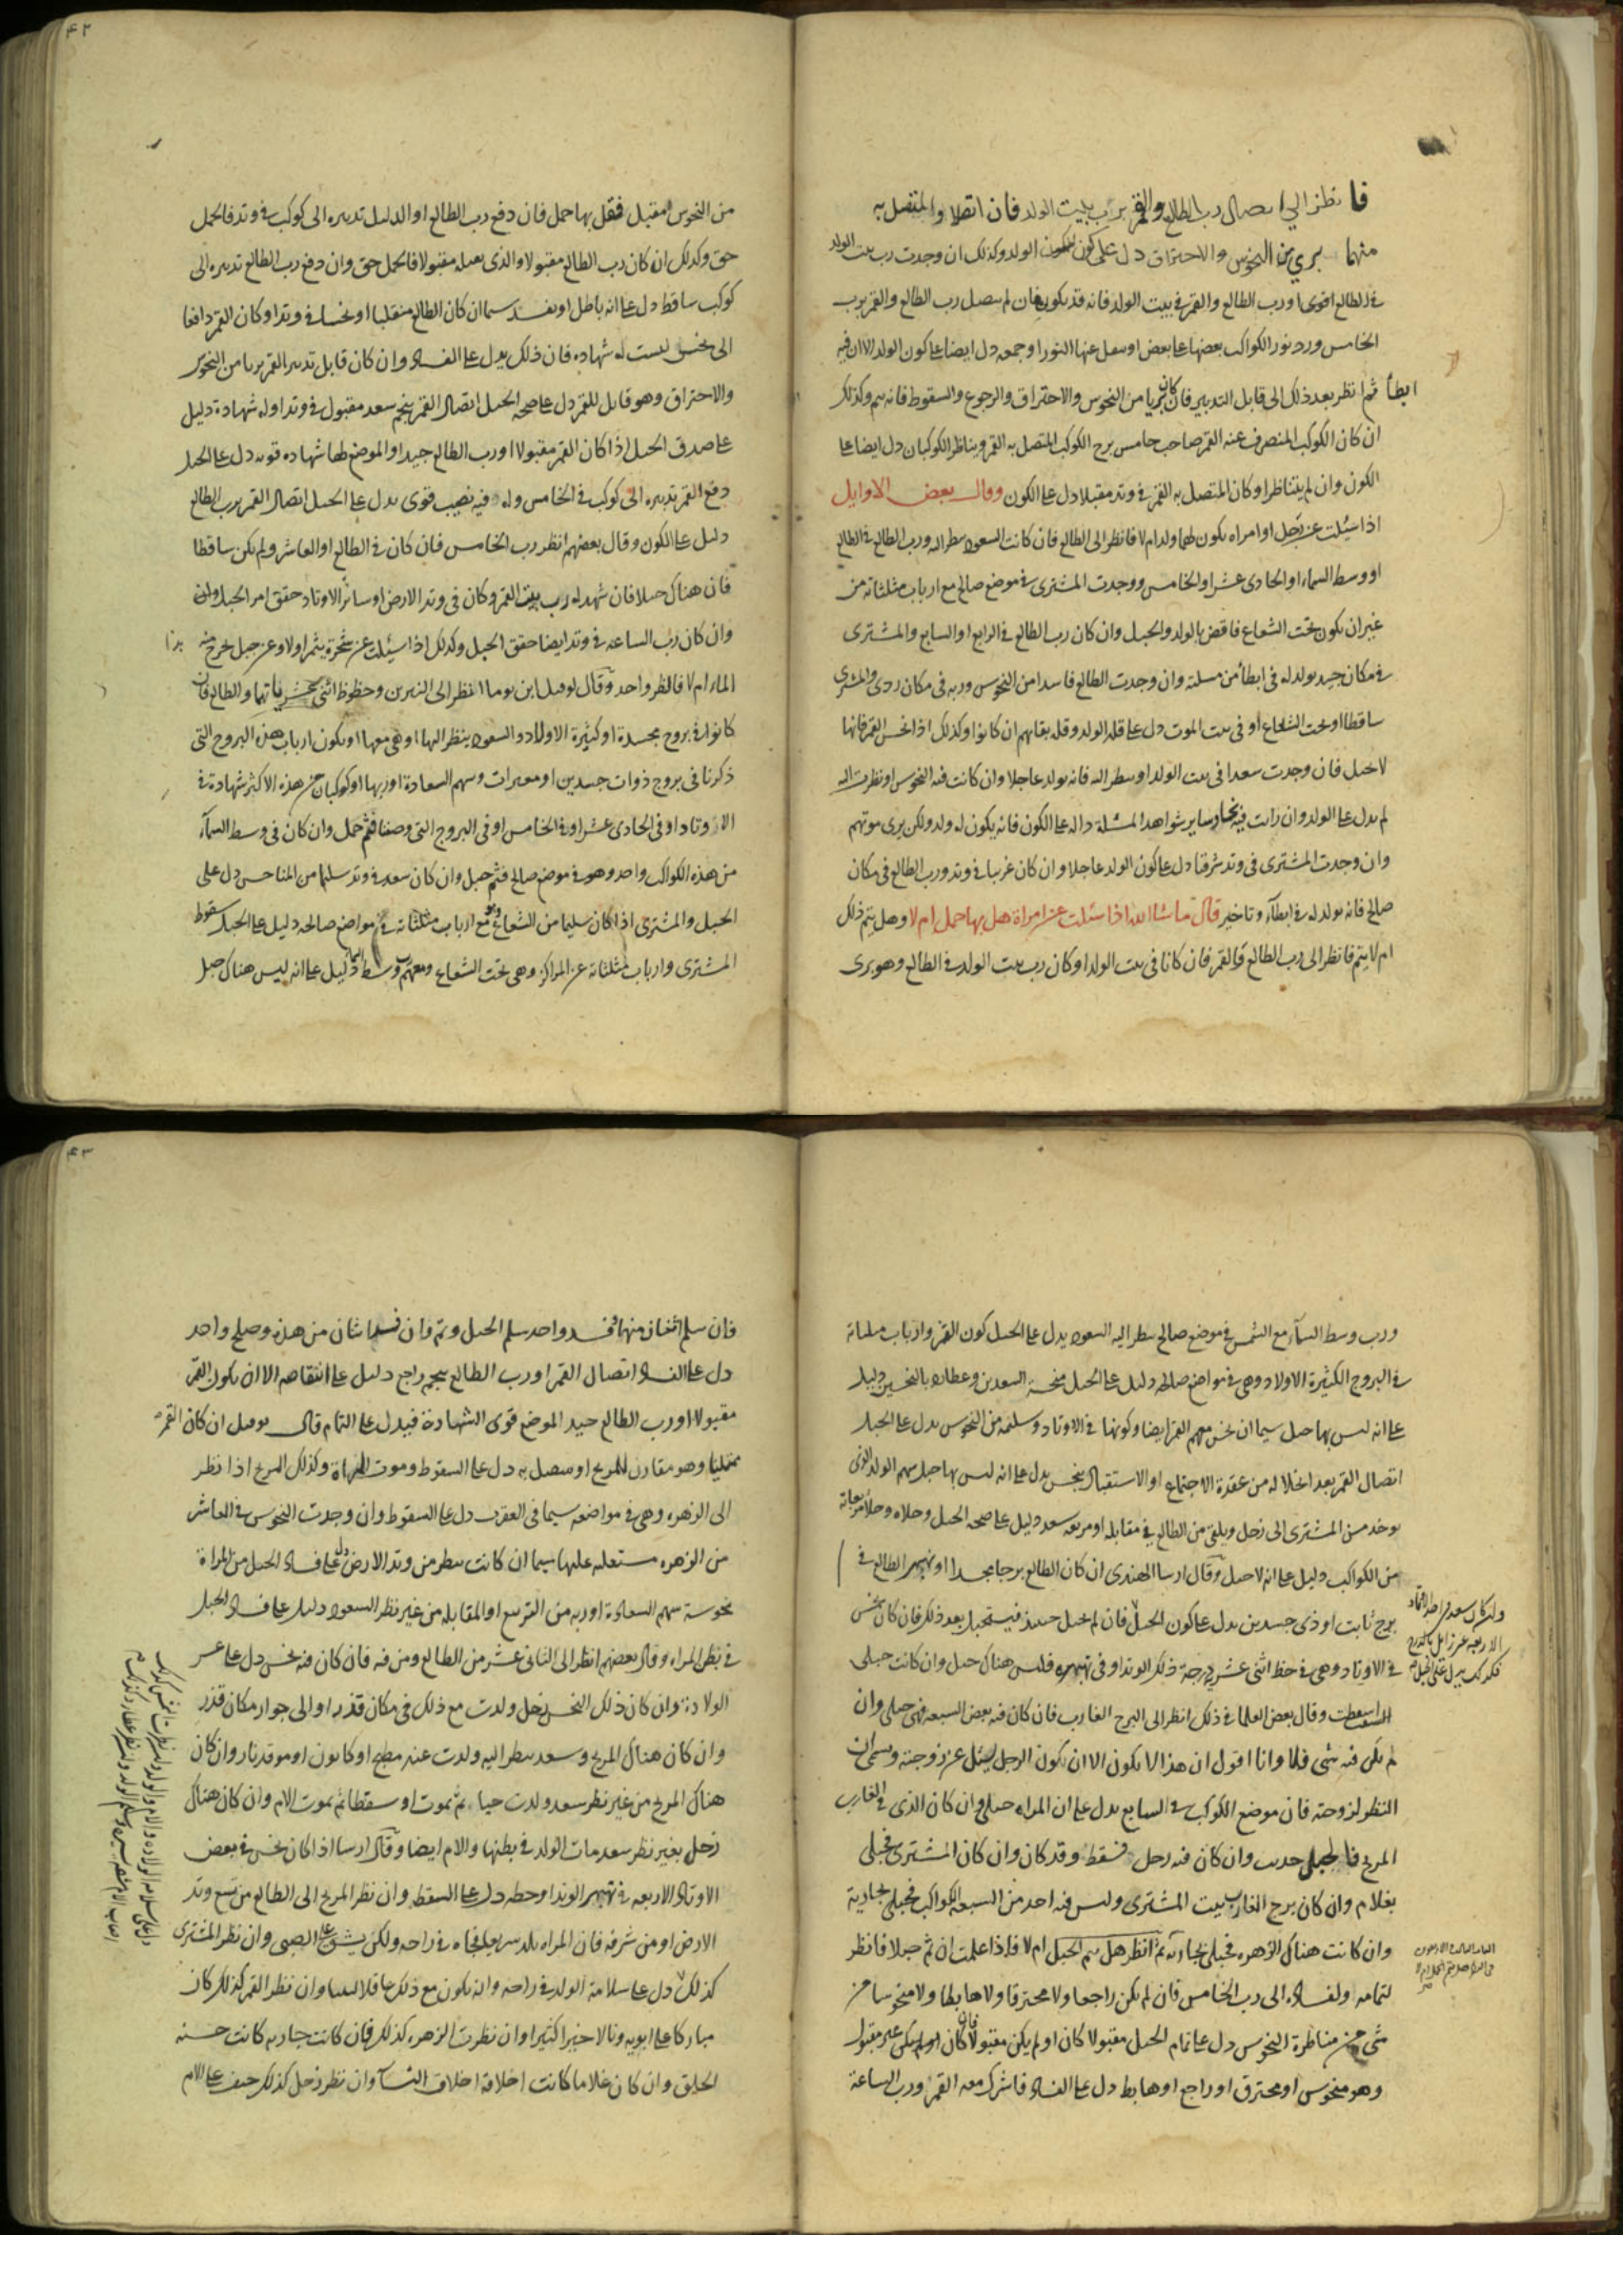 فانظر الي اتصال رب الطالع والقمر برب بيت الولد فان اتصلا والمتصل به
منهما بري من النحوس والاحتراق دل على كون الولد وكذلك ان وجدت رب بيت الولد
في الطالع اقوى او رب الطالع والقمر في بيت الولد فانه قد يكون فان لم يتصل رب الطالع والقمر برب
الخامس ورد نور الكواكب بعضها على بعض او ينقل عنها النور او جمعه دل ايضا على كون الولد الا ان فيه
ابطأ ثم انظر بعد ذلك الى قابل التدبير فان كان بريا من النحوس والاحتراق والرجوع والسقوط فانه يتم وكذلك
ان كان الكوكب المنصرف عنه القمر صاحب خامس برج الكوكب المتصل به القمر ويتناظر الكوكبان دل ايضا على
الكون وان لم يتناظرا وكان المتصل به القمر في وتد مقبلا دل على الكون وقال بعض الاوايل
اذا سئلت عن رجل او امراه يكون لهما ولد ام لا فانظر الى الطالع فان كانت السعود ينظر اليه ورب الطالع في الطالع
او وسط السماء او الحادى عشر او الخامس ووجدت المشترى في موضع صالح مع ارباب مثلثاته من
غير ان يكون تحت الشعاع فاقض بالولد والحبل وان كان رب الطالع في الرابع او السابع والمشترى
في مكان جيد يولد له في ابطأ من مسلته وان وجدت الطالع فاسدا من النحوس وربه في مكان ردى والمشترى
ساقطا او تحت الشعاع او في بيت الموت دل على قلة الولد وقلة بقايهم ان كانوا وكذلك اذا نحس القمر فانها
لا تحبل فان وجدت سعدا في بيت الولد او ينظر اليه فانه يولد عاجلا وان كانت فيه النحوس او نظرت اليه
لم يدل على الولد وان رايت فيه نحسا وساير شواهد المسئلة داله على الكون فانه يكون له ولد ولكن يرى موتهم
وان وجدت المشترى في وتد شرقيا دل على كون الولد عاجلا وان كان غربيا في وتد ورب الطالع في مكان
صالح فانه يولد له في ابطآء وتاخير قال ما شا الله اذا سئلت عن امراة هل بها حمل ام لا وهل يتم ذلك
ام لا يتم فانظر الى رب الطالع والقمر فان كانا في بيت الولد او كان رب بيت الولد في الطالع وهو برى
من النحوس مقبل فقل بها حمل فان دفع رب الطالع او الدليل تدبيره الى كوكب في وتد فالحمل
حق وكذلك ان كان رب الطالع مقبولا والذى يقبله مقبولا فالحمل حق وان دفع رب الطالع تدبيره الى
كوكب ساقط دل على انه باطل او يفسد سيما ان كان الطالع منقلبا او نحسا في وتد او كان القمر دافعا
الى نحس ليست له شهاده فان ذلك يدل على الفساد وان كان قابل تدبير القمر بريا من النحوس
والاحتراق وهو قابل للقمر دل على صحة الحبل اتصال القمر بنجم سعد مقبول في وتد او له شهادة دليل
على صدق الحبل اذا كان القمر مقبولا او رب الطالع جيد او الموضع لها شهاده قويه دل على الحبل
دفع القمر تدبيره الى كوكب في الخامس وله فيه نصيب قوى يدل على الحبل اتصال القمر برب الطالع
دليل على الكون وقال بعضهم انظر رب الخامس فان كان في الطالع او العاشر ولم يكن ساقطا
فان هناك حبلا فان شهد له رب بيت القمر وكان في وتد الارض او سائر الاوتاد حقق امر الحبل
وان كان رب الساعه في وتد ايضا حقق الحبل وكذلك اذا سيئلت عن شجرة يثمر اولا وعن جبل يخرج منه
الماء ام لا فالنظر واحد وقال انظر الى النيرين وحظوظ اثنى عشرياتهما والطالع فان
كانوا في بروج مجسدة او كثيرة الاولاد والسعود ينظر اليها او هي معها او يكون ارباب هذه البروج التى
ذكرنا في بروج ذوات جسدين وسهم السعادة او ربها او كوكبان من هذه الاكثر شهادة في
الاوتاد او في الحادى عشر او في الخامس او في البروج التى وصفنا فثم حمل وان كان في وسط السمآء
من هذه الكواكب واحد وهو في موضع صالح فثم حبل وان كان سعد في وتد سليما من المناحس دل على
الحبل والمشترى اذا كان سليما من الشعاع مع ارباب مثلثاته في مواضع صالحه دليل على الحبل سقوط
المشترى وارباب مثلثاته عن المراكز وهي تحت الشعاع ومعهم رب وسط السماء دليل على انه ليس هناك حبل
ورب وسط السمآء مع الشمس في موضع صالح ينظر اليه السعود يدل على الحبل كون القمر وارباب مثلثاته
في البروج الكثيرة الاولاد وهي في مواضع صالحه دليل على الحبل السعدين وعطارد بالنحسين دليل
على انه ليس بها حبل سيما ان نحس معهم القمر ايضا وكونها في الاوتاد وسليمه من النحوس يدل على الحبل
اتصال القمر بعد انحلاله من عقدة الاجتماع او الاستقبال بنحس يدل على انه ليس بها حبل سهم الولد الذى
يوخد من المشترى الى زحل ويلقى من الطالع في مقابله او مربعه سعد دليل على صحه الحبل وخلاه
من الكواكب دليل على انه لا حبل وقال ارسا الهندى ان كان الطالع برجا مجسدا او نهبهر الطالع في
برج ثابت او ذى جسدين يدل على كون الحبل فان لم تحبل حينئذ فيستحبل بعد ذلك فان كان نحس
في الاوتاد وهي في حظ اثنى عشريه درجة ذلك الوتد او في نهبهره فليس هناك حبل وان كانت حبلى
اسقطت وقال بعض العلما في ذلك انظر الى البرج الغارب فان كان فيه بعض السبعه فهى حبلى وان
لم يكن فيه شى فلا وانا اقول ان هذا لا يكون الا ان يكون الرجل يسئل عن زوجته
النظر لزوجته فان موضع الكوكب في السابع يدل على ان المراه حبلى وان كان الذى في الغارب
المريخ وان كان فيه زحل فسقط وقد كان وان كان المشترى فحبلى
بغلام وان كان برج الغارب بيت المشترى وليس فيه احد من السبعه الكواكب فحبلى بجارية
وان كانت هناك الزهره فحبلى بجاريه ثم انظر هل يتم الحبل ام لا فاذا علمت ان ثم حبلا فانظر
لتمامه ولفساده الى رب الخامس فان لم يكن راجعا ولا محترقا ولا هابطا ولا منحوسا من
شى من مناظرة النحوس دل على تمام الحبل مقبولا كان او لم يكن مقبولا فان كان غير مقبول
وهو منحوس او محترق او راجع او هابط دل على الفساد فاشرك معه القمر ورب الساعة
فان سلم اثنان منها وفسد واحد سلم الحبل وتم وان فسد اثنان من هذه وصلح واحد
دل على الفساد اتصال القمر او رب الطالع بنجم راجع دليل على انتقاضه الا ان يكون القمر
مقبولا او رب الطالع جيد الموضع قوى الشهادة فيدل على التمام قال ان كان القمر
ممتليا وهو مقارن للمريخ او متصل به دل على السقوط وموت المراة وكذلك المريخ اذا نظر
الى الزهره وهي في مواضعه سيما في العقرب دل على السقوط وان وجدت النحوس في العاشر
من الزهره مستعليه عليها سيما ان كانت ينظر من وتد الارض دل على فساد الحبل من المراة
نحوسة سهم السعادة او ربه من التربيع او المقابله من غير نظر السعود دليل على فساد الحبل
في بطن المراه وقال بعضهم انظر الى الثانى عشر من الطالع ومن فيه فان كان فيه نحس دل على عسر
الولادة وان كان ذلك النحس زحل ولدت مع ذلك في مكان قذر او الى جوار مكان قذر
وان كان هناك المريخ وسعد ينظر اليه ولدت عند مطبخ او كانون او موقد نار وان كان
هناك المريخ من غير نظر سعد ولدت حيا ثم يموت او سقطا ثم يموت الام وان كان هناك
زحل بغير نظر سعد مات الولد في بطنها والام ايضا وقال ارسا اذا كان نحس في بعض
الاوتاد الاربعه في نهبهر الوتد او حظه دل على السقط وان نظر المريخ الى الطالع من تسع وتد
الارض او من شرفه فان المراه تلد في راحه ولكن يشق على الصبى وان نظر المشترى
كذلك دل على سلامة الولد في راحه وانه يكون مع ذلك عاقلا لبيبا وان نظر القمر كذلك كان
مباركا على ابويه ونالا خيرا كثيرا وان نظرت الزهره كذلك فان كانت جاريه كانت حسنه
الخلق وان كان غلاما كانت اخلاقه اخلاق النسآء وان نظر زحل كذلك خيف على الام